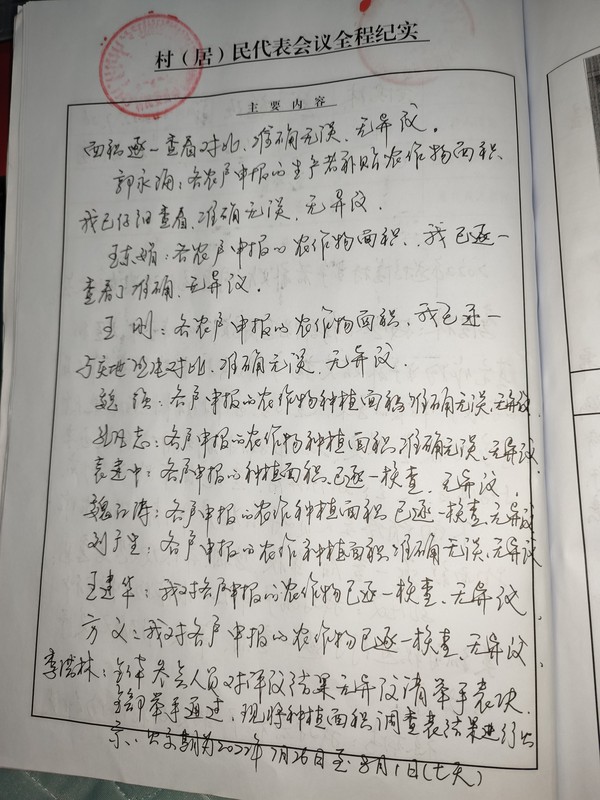 村（居）民代表会议全程纪实
主要内容
面积逐一查看对比、准确无误、无异议。
郭永海：各农户申报的生产者补贴农作物面积、
我已仔细查看、准确无误、无异议。
王东娟：各农户申报的农作物面积、我已逐一
查看了准确、无异议。
王刚：各农户申报的农作物面积、我已逐一
与实地 对比、准确无误、无异议。
魏 ：各户申报的农作物种植面积准确无误、无异议
志：各户申报的农作物种植面积准确无误、无异议
袁建中：各户申报的种植面积、已逐一核查、无异议。
魏 涛：各户申报的农作种植面积已逐一核查、无异议
刘广生：各户申报的农作种植面积准确无误、无异议
王建华：我对各户申报的农作物已逐一核查、无异议、
方义：我对各户申报的农作物已逐一核查、无异议、
李洪林：全体参会人员对评议结果无异议请举手表决、
全部举手通过、现将种植面积调查表结果进行公
示、公示期为2022年7月26日至8月1日(七天)